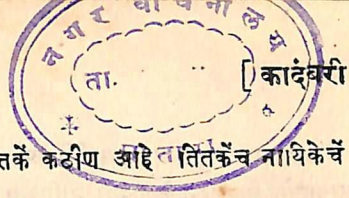 नगर वाचनालय
ता.
[ कादंबरी
तकें कठीण आहे तितकेंच नायिकेचें